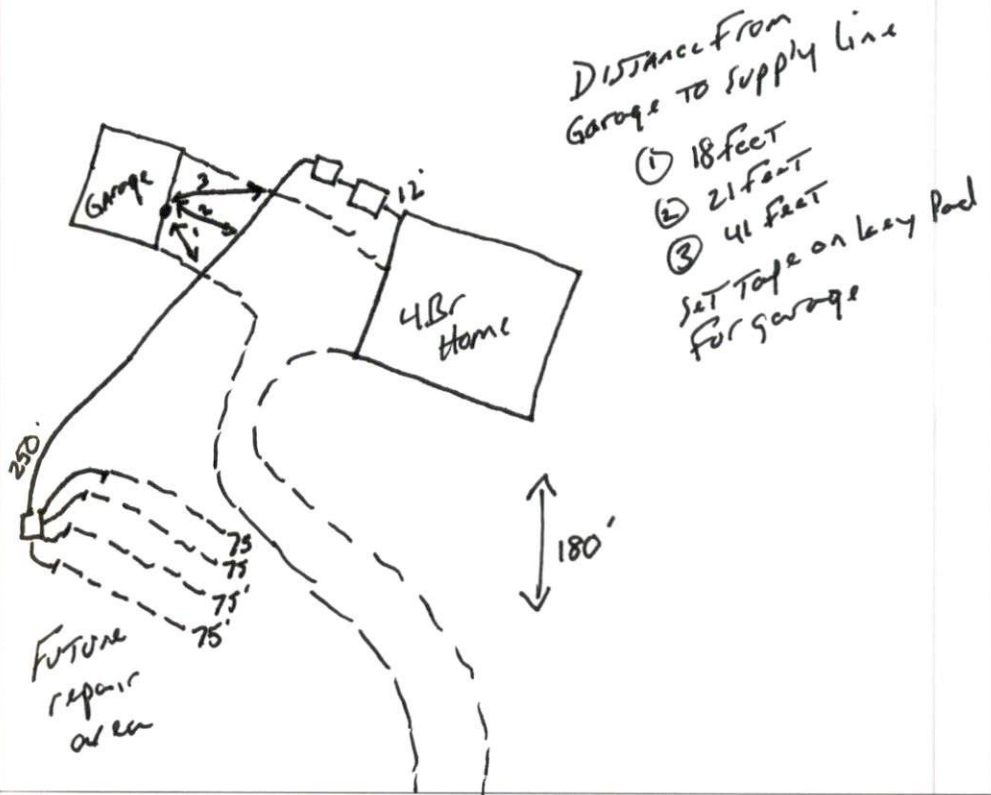 DISTANCE From
Garage To Supply Line
① 18 feet
② 21 feet
③ 41 feet
Set Tape on key Pad
For garage
Garage
3
2
1
12'
4Br
Home
250'
75
75
75'
75'
180'
Future
repair
area